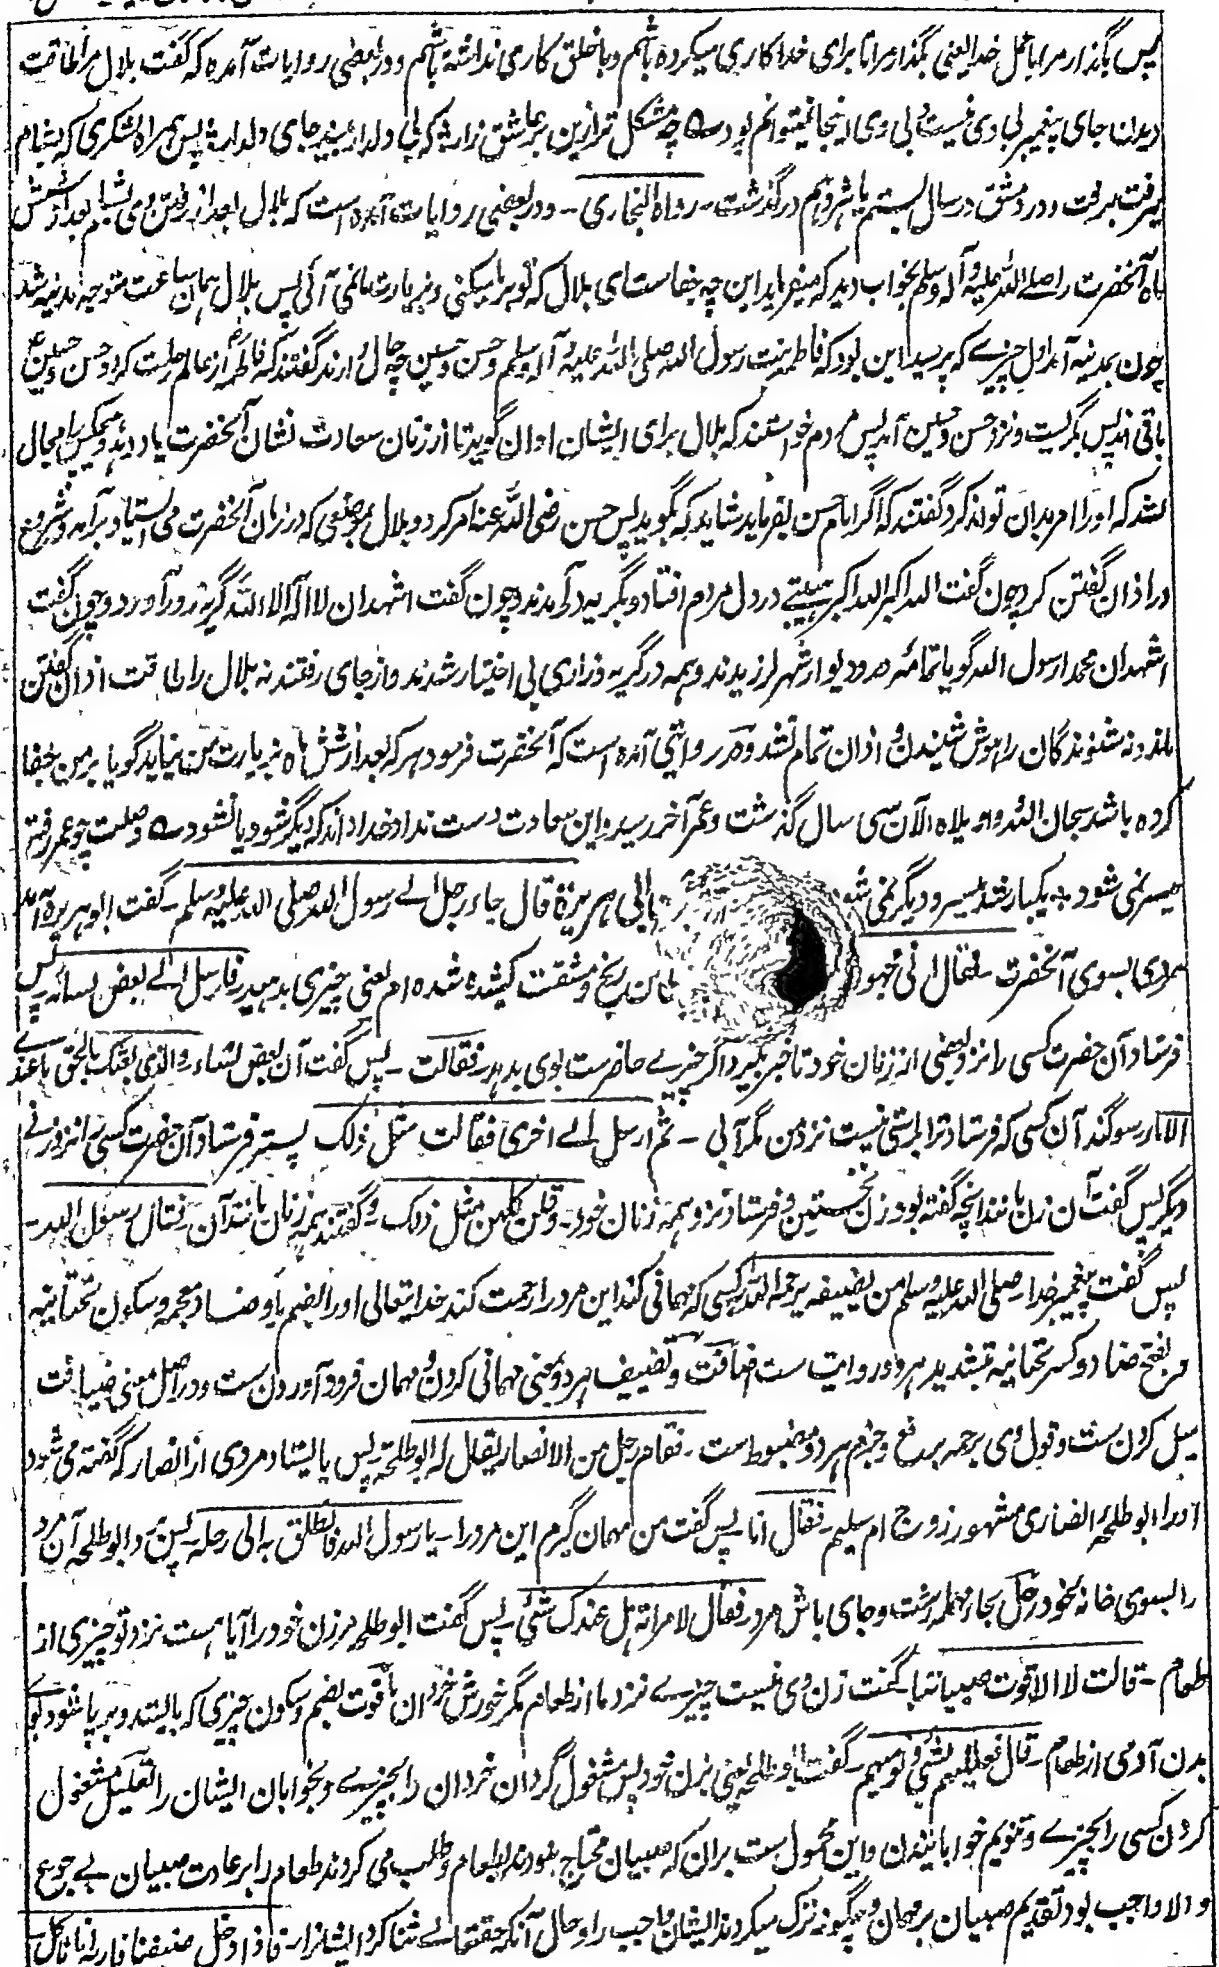 پس بگذار مرا با عمل خدا یعنی بگذار مرا تا برای خدا کاری میکرده باشم و با خلق کار می نداشته باشم و در بعضی روایات آمده که گفت بلال مرا طاقت
دیدن جای پیغمبر بی وی نیست بی وی اینجا نمیتوانم بود ؎ چه مشکل تر ازین بر عاشق زار * که بی دلدار بیند جای دلدار * پس همراه لشکری که بشام
میرفت برفت و در دمشق در سال بیستم یا هژدهم درگذشت ـ رواه البخاری ـ و در بعضی روایات آمده است که بلال بعد از رفتن وی بشام بعد از شش
ماه آنحضرت را صلے الله علیه و آله وسلم بخواب دید که میفرماید این چه جفاست ای بلال که تو بر ما میکنی و بزیارت ما نمی آئی پس بلال همان ساعت متوجه مدینه شد
چون بمدینه آمد اول چیزے که پرسید این بود که فاطمه بنت رسول الله صلی الله علیه و آله وسلم و حسن و حسین چه حال دارند گفتند که فاطمه از عالم رحلت کرد و حسن و حسین
باقی اند پس بگریست و نزد حسن و حسین آمد پس مردم خواستند که بلال برای ایشان اذان گوید تا از زمان سعادت نشان آنحضرت یاد دهد و هیچکس را مجال
نشد که او را امر بدان تواند کرد گفتند که اگر امام حسن بفرماید شاید که بگوید پس حسن رضی الله عنه امر کرد و بلال بموضعی که در زمان آنحضرت می ایستاد برآمد و شروع
در اذان گفتن کرد چون گفت الله اکبر الله اکبر هیبتے در دل مردم افتاد و بگریه درآمدند و چون گفت اشهد ان لا اله الا الله گریه زور آورد و چون گفت
اشهد ان محمدا رسول الله گویا تمامه در و دیوار شهر لرزیدند و همه در گریه و زاری بی اختیار شدند و از جای رفتند نه بلال را طاقت اذان گفتن
ماند و نه شنوندگان را هوش شنیدن و اذان تمام نشد و در روایتی آمده است که آنحضرت فرمود هر که بعد از شش ماه بزیارت من نیاید گویا بر من جفا
کرده باشد سبحان الله و او یلاه الآن سی سال گذشت و عمر آخر رسید و این سعادت دست نداد خدا داند که دیگر شود یا نشود ؎ وصلت چو عمر رفته
میسر نمی شود * یکبار شد میسر و دیگر نمی شود ابی هریرة قال جاء رجل الے رسول الله صلی الله علیه وسلم ـ گفت ابو هریره آمد
مردی بسوی آنحضرت ـ فقال انی مجهود من رنج و مشقت کشیده شده ام یعنی چیزی بدهید ـ فارسل الے بعض نسائه ـ پس
فرستاد آن حضرت کسی را نزد بعضی از زنان خود تا خبر بگیرد اگر چیزے حاضرست بوی بدهد ـ فقالت ـ پس گفت آن بعض نساء ـ والذی بعثک بالحق ما عندے
الا ماء ـ سوگند آن کسی که فرستاد ترا براستی نیست نزد من مگر آبی ـ ثم ارسل الے اخری فقالت مثل ذلک ـ پستر فرستاد آن حضرت کسی را نزد زنے
دیگر پس گفت آن زن مانند آنچه گفته بود زن نخستین و فرستاد نزد همه زنان خود ـ و قلن کلهن مثل ذلک ـ و گفتند همه زنان مانند آن ـ فقال رسول الله ـ
پس گفت پیغمبر خدا ـ صلی الله علیه وسلم من یضیفه یرحمه الله ـ کسی که مهمانی کند این مرد را رحمت کند خدا یتعالی او را بضم یا و ضاد معجمه و سکون تحتانیه
و بفتح ضاد و کسر تحتانیه بتشدید هر دو روایت ست اضافت و تضییف هر دو بمعنی مهمانی کردن و مهمان فرود آوردن ست و در اصل معنی ضیافت
میل کردن ست و قول وی یرحمه برفع و جزم هر دو مضبوط ست ـ فقام رجل من الانصار یقال له ابو طلحة ـ پس بایستاد مردی از انصار که گفته می شود
او را ابو طلحه انصاری مشهور زوج ام سلیم ـ فقال انا ـ پس گفت من مهمان گیرم این مرد را ـ یا رسول الله فانطلق به الی رحله ـ پس برد ابو طلحه آن مرد
را بسوی خانه خود رحل بحاء مهمله رخت و جای باش مرد ـ فقال لامراته هل عندک شئی ـ پس گفت ابو طلحه مر زن خود را آیا هست نزد تو چیزی از
طعام ـ قالت لا الا قوت صبیاننا ـ گفت زن وی نیست چیزے نزد ما از طعام مگر خورش خردان ما قوت بضم و سکون چیزی که بایستد و برپا شود بوے
بدن آدمی از طعام ـ قال فعللیهم بشئی و نومیهم ـ گفت ابو طلحه یعنی بزن خود پس مشغول گردان خردان را بچیزے و بخوابان ایشان را تعلیل مشغول
کردن کسی را بچیزے و تنویم خوابانیدن و این محمول ست بران که صبیان محتاج نبودند بطعام و طلب می کردند طعام را بر عادت صبیان بے جوع
و الا واجب بود تقدیم صبیان بر مهمان و چگونه ترک میکردند ایشان واجب را و حال آنکه حقتعالے ثنا کرد ایشانرا ـ فاذا دخل ضیفنا فاریه انا ناکل